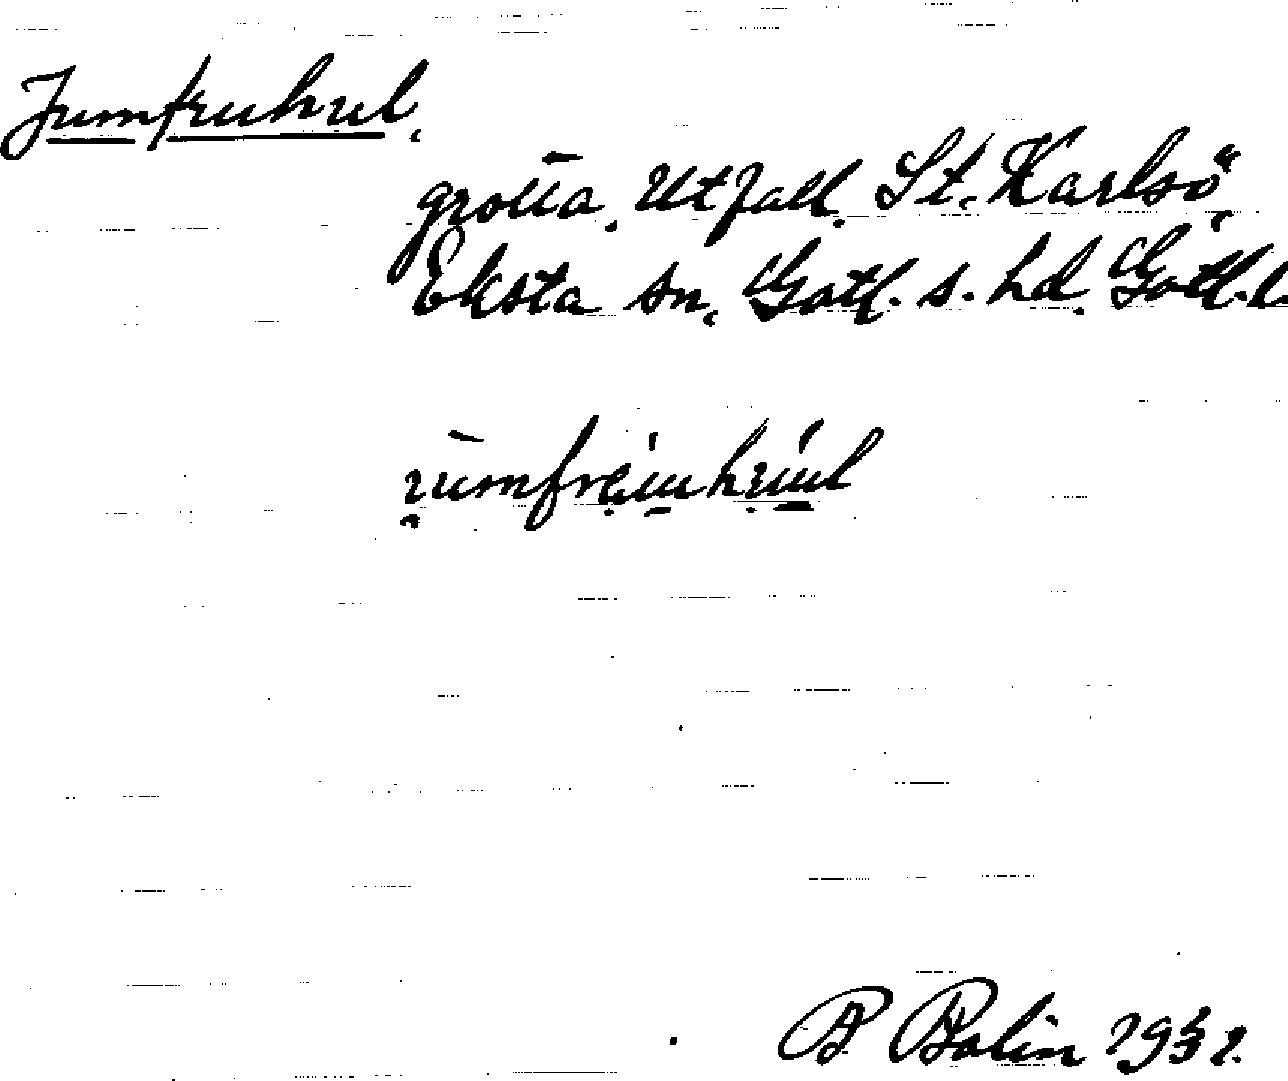 Jumfruhul,
grotta. Utfall. St. Karlsö,
Eksta sn, Gotl. s. hd. Gotl. l.
P Bolin 1932.